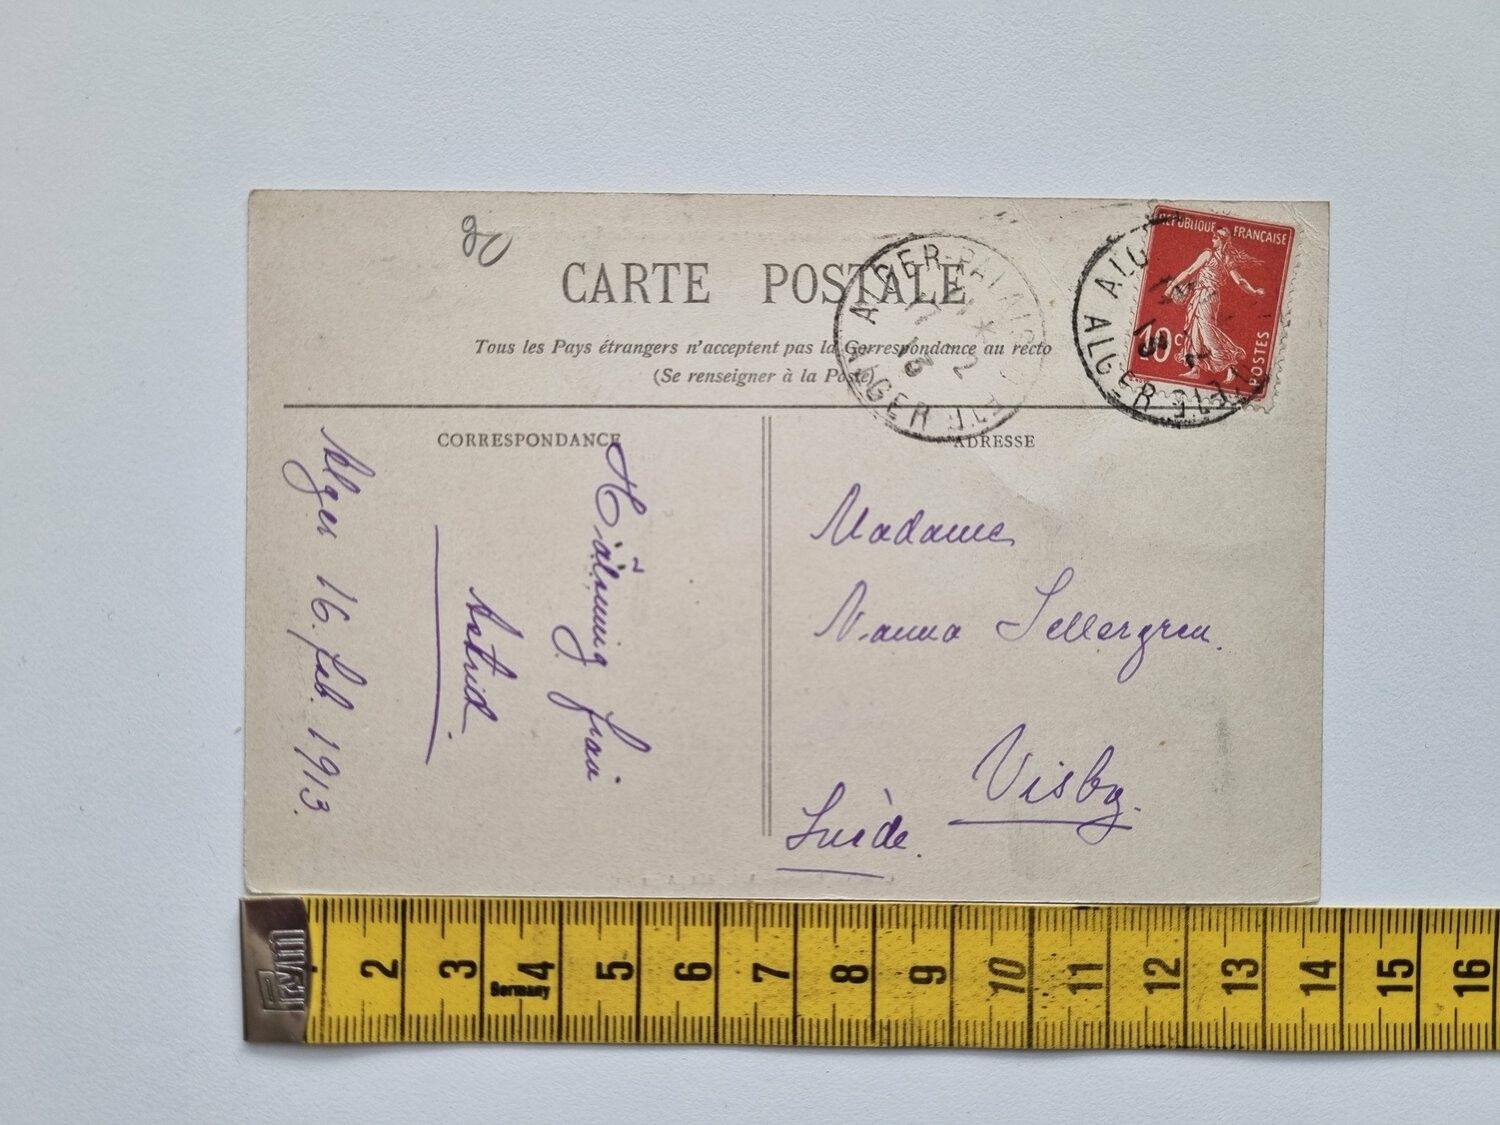 20
CARTE POSTALE
Tous les Pays étrangers n'acceptent pas la Correspondance au recto
(Se renseigner à la Poste)
ALGER-PALAIS D'ETE
17 * 2
13
ALGER
REPUBLIQUE FRANÇAISE
10c
POSTES
ALGER
ALGER
CORRESPONDANCE
ADRESSE
Alger 16. feb. 1913.
Hälsning från
Astrid.
Madame
Nanna Sellergren.
Visby.
Suède.
Prym
Germany
2 3 4 5 6 7 8 9 10 11 12 13 14 15 16